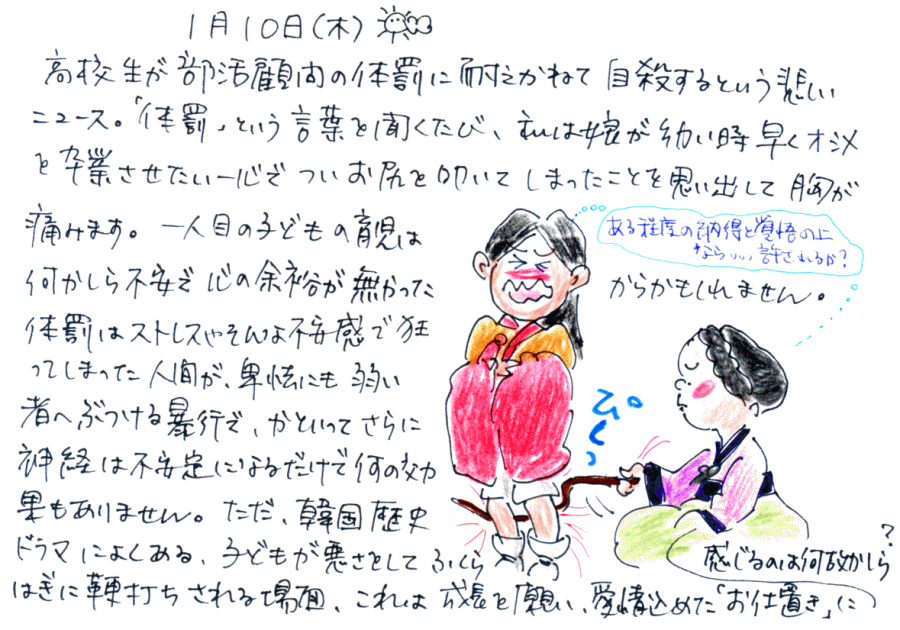 1月10日(木)
高校生が部活顧問の体罰に耐えかねて自殺するという悲しい
ニュース。「体罰」という言葉を聞くたび、私は娘が幼い時早くオシメ
を卒業させたい一心でついお尻を叩いてしまったことを思い出して胸が
痛みます。一人目の子どもの育児は
何かしら不安で心の余裕が無かった
からかもしれません。
体罰はストレスやそんな不安感で狂
ってしまった人間が、卑怯にも弱い
者へぶつける暴行で、かといってさらに
神経は不安定になるだけで何の効
果もありません。ただ、韓国歴史
ドラマによくある、子どもが悪さをしてふくら
はぎに鞭打ちされる場面、これは成長を願い、愛情込めた「お仕置き」に
感じるのは何故かしら?
ある程度の納得と覚悟の上
なら…許されるか?
ぴしっ